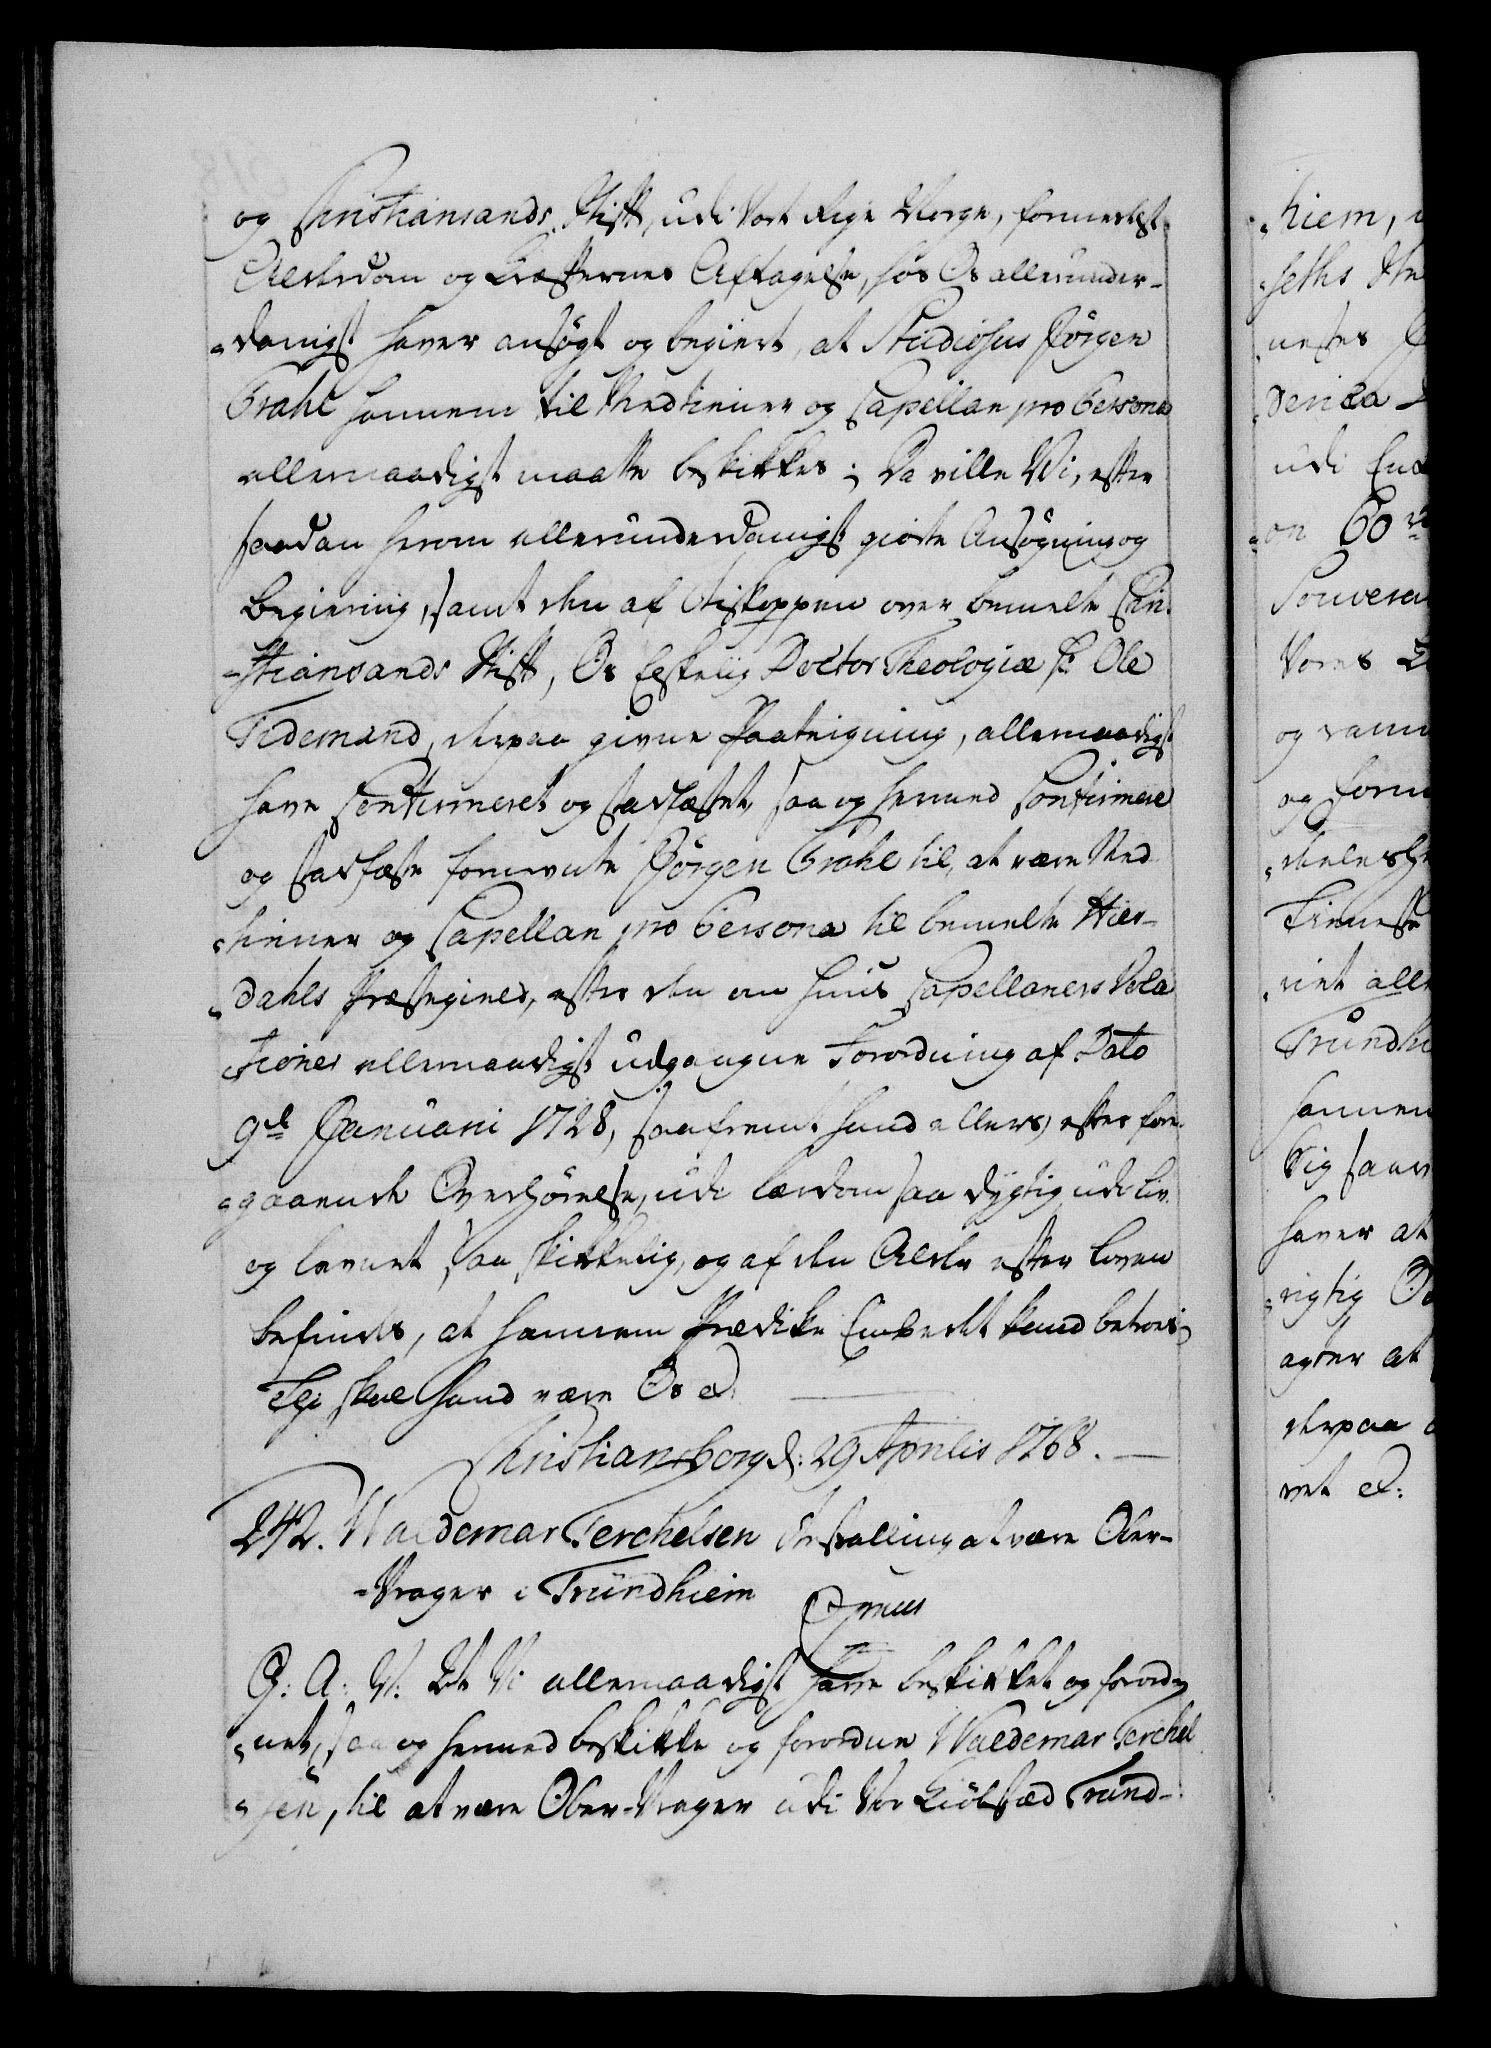 og Christiansands Stift, udi Vort Rige Norge, formedelst
Alderdom og Kræfternes Aftagelse, hos Os allerunder-
-danigst haver ansøgt og begiert, at Studiosus Jörgen
Grahl hannem til Medtiener og Capellan pro Persona
allernaadigst maatte beskikkes; Da ville Vi, efter
saadan herom allerunderdanigst giorte Ansøgning og
Begiering, samt den af Biskoppen over bemelte Chri-
-stiansands Stift, Os Elskelig Doctor Theologiæ Hr. Ole
Tidemand, derpaa givne Paategning, allernaadigst
have Confirmeret og stadfæstet, saa og hermed Confirmere
og stadfæste fornevnte Jörgen Grahl til, at være Med-
-tiener og Capellan pro Persona til bemelte Hier-
-dahls Præstegield, efter den om Huus Capellaners Voca-
-tioner allernaadigst udgangne Forordning af Dato
9de Januarii 1728, saafremt hand ellers, efter fore-
-gaaende Overhörelse, udi Lærdom saa dygtig, udi Liv
og Levnet saa skikkelig, og af den Alder efter Loven
befindes, at hannem Prædike Embedet kand betroes;
Thj skal Hand være Os &.
Christiansborg d: 29 Aprilis 1768.
242. Waldemar Terchelsen Bestalling at være Ober-
-Vrager i Trundhiem
G: A: V: At Vi allernaadigst have beskikket og forord-
-net, saa og hermed beskikke og forordne Waldemar Terchel-
-sen, til at være Ober-Vrager udi Vor Kiöbstæd Trund-
hiem,
-seths
udi
on
Souverai
Vores
og
og
Trundhi
hannem
haver at
rigtig
agter at
derpaa
vet &: